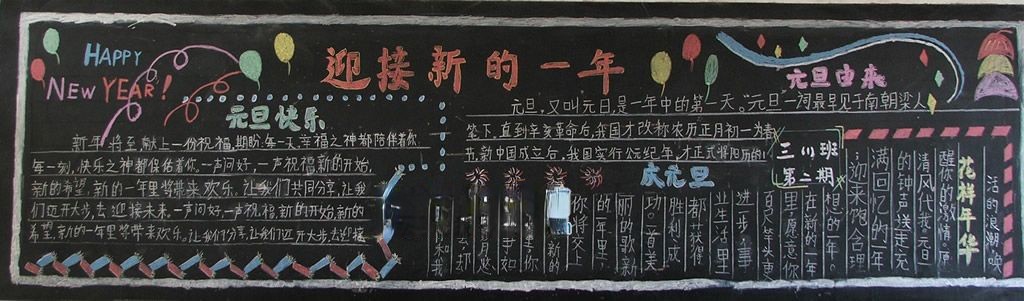 HAPPY
NEW YEAR!
迎接新的一年
元旦快乐
新年将至献上一份祝福,期盼每一天幸福之神都陪伴着你
每一刻,快乐之神都保佑着你.一声问好,一声祝福,新的开始,
新的希望,新的一年里将带来欢乐.让我们共同分享,让我
们迈开大步,去迎接未来.一声问好,一声祝福,新的开始,新的
希望,新的一年里将带来欢乐.让我们分享,让我们迈开大步,去迎接
元旦由来
元旦,又叫元日,是一年中的第一天."元旦"一词最早见于南朝梁人
笔下,直到辛亥革命后,我国才改称农历正月初一为春
节,新中国成立后,我国实行公元纪年,才正式将阳历的1
三(1)班
第二期
庆元旦
你将交上
的一年里
丽的歌新
功。一首美
胜利,成
都获得
业生活里
进步,事
里,愿意你
在新的一年
想的年。
满回忆的一年
的钟声送走充
清风代我元旦
醒你的激情。愿
活的浪潮,唤
花样年华